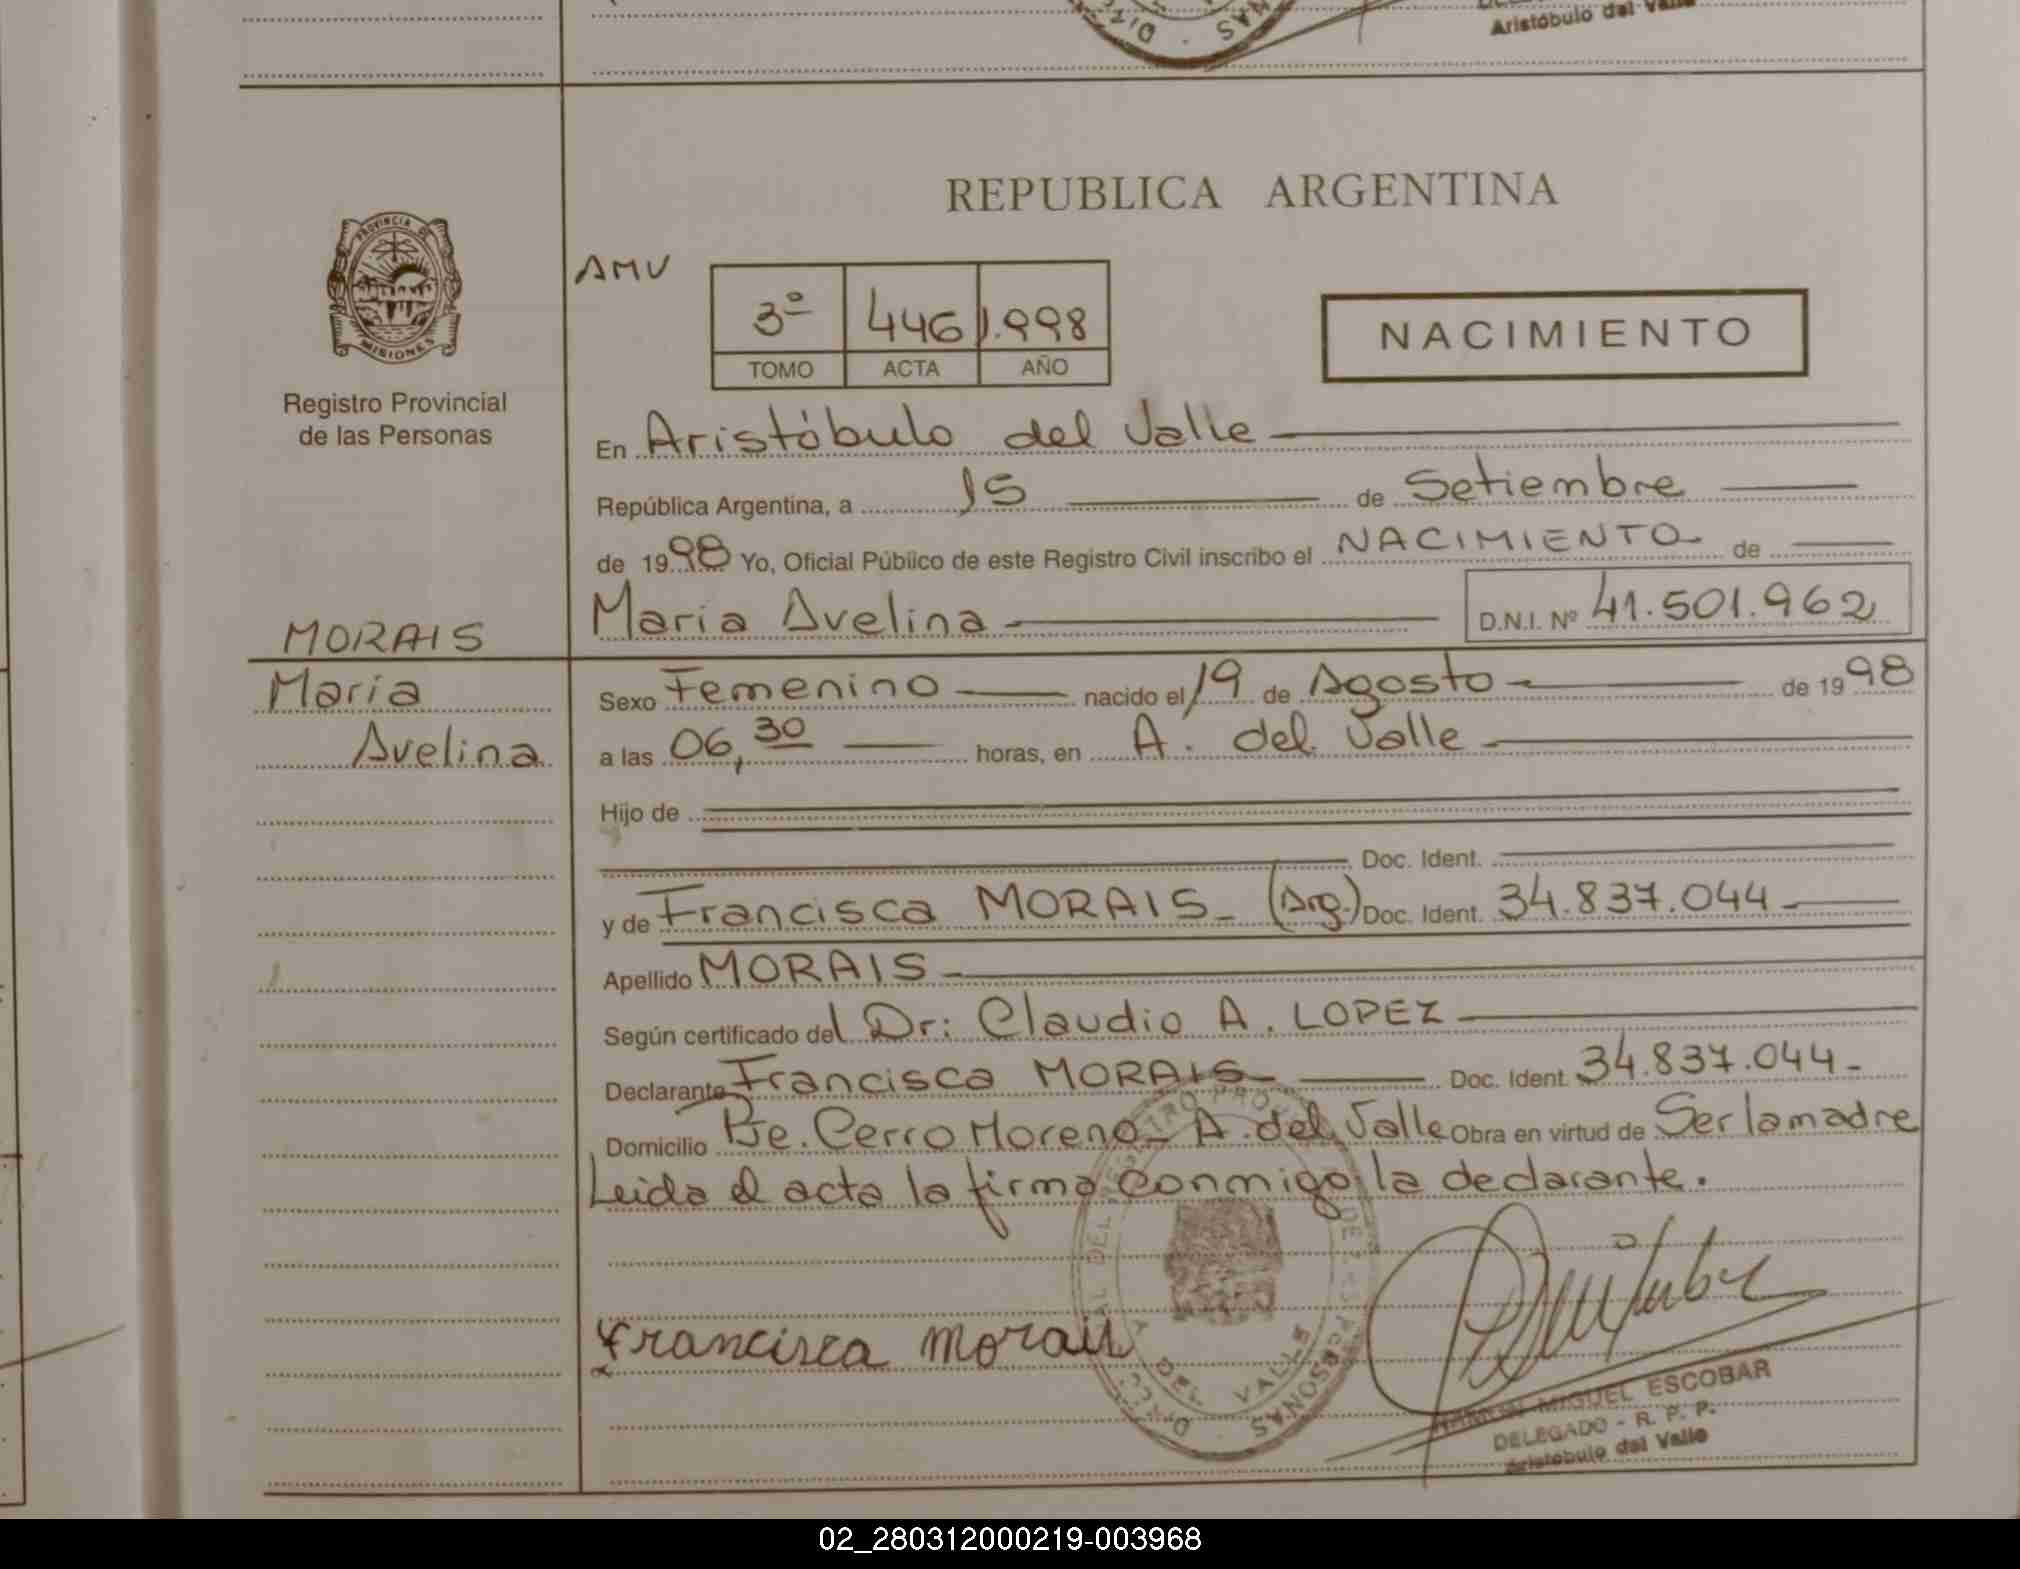 Aristóbulo del Valle
REPUBLICA ARGENTINA
PROVINCIA DE
MISIONES
Registro Provincial
de las Personas
AMV
3º 446 1.998
TOMO ACTA AÑO
NACIMIENTO
En Aristóbulo del Valle
República Argentina, a 15 de Setiembre
de 1998 Yo, Oficial Público de este Registro Civil inscribo el NACIMIENTO de
MORAIS
Maria Avelina
D.N.I. Nº 41.501.962
Maria
Avelina
Sexo Femenino nacido el 19 de Agosto de 1998
a las 06,30 horas, en A. del Valle
Hijo de
Doc. Ident.
y de Francisca MORAIS (Arg.) Doc. Ident. 34.837.044
Apellido MORAIS
Según certificado del Dr: Claudio A. LOPEZ
Declarante Francisca MORAIS Doc. Ident. 34.837.044
Domicilio Pje. Cerro Moreno A. del Valle Obra en virtud de Ser la madre
Leida el acta la firma conmigo la declarante.
Francisca Morais
DEL VALLE
PERSONAS
RAMON MIGUEL ESCOBAR
DELEGADO - R. P. P.
Aristóbulo del Valle
02_280312000219-003968